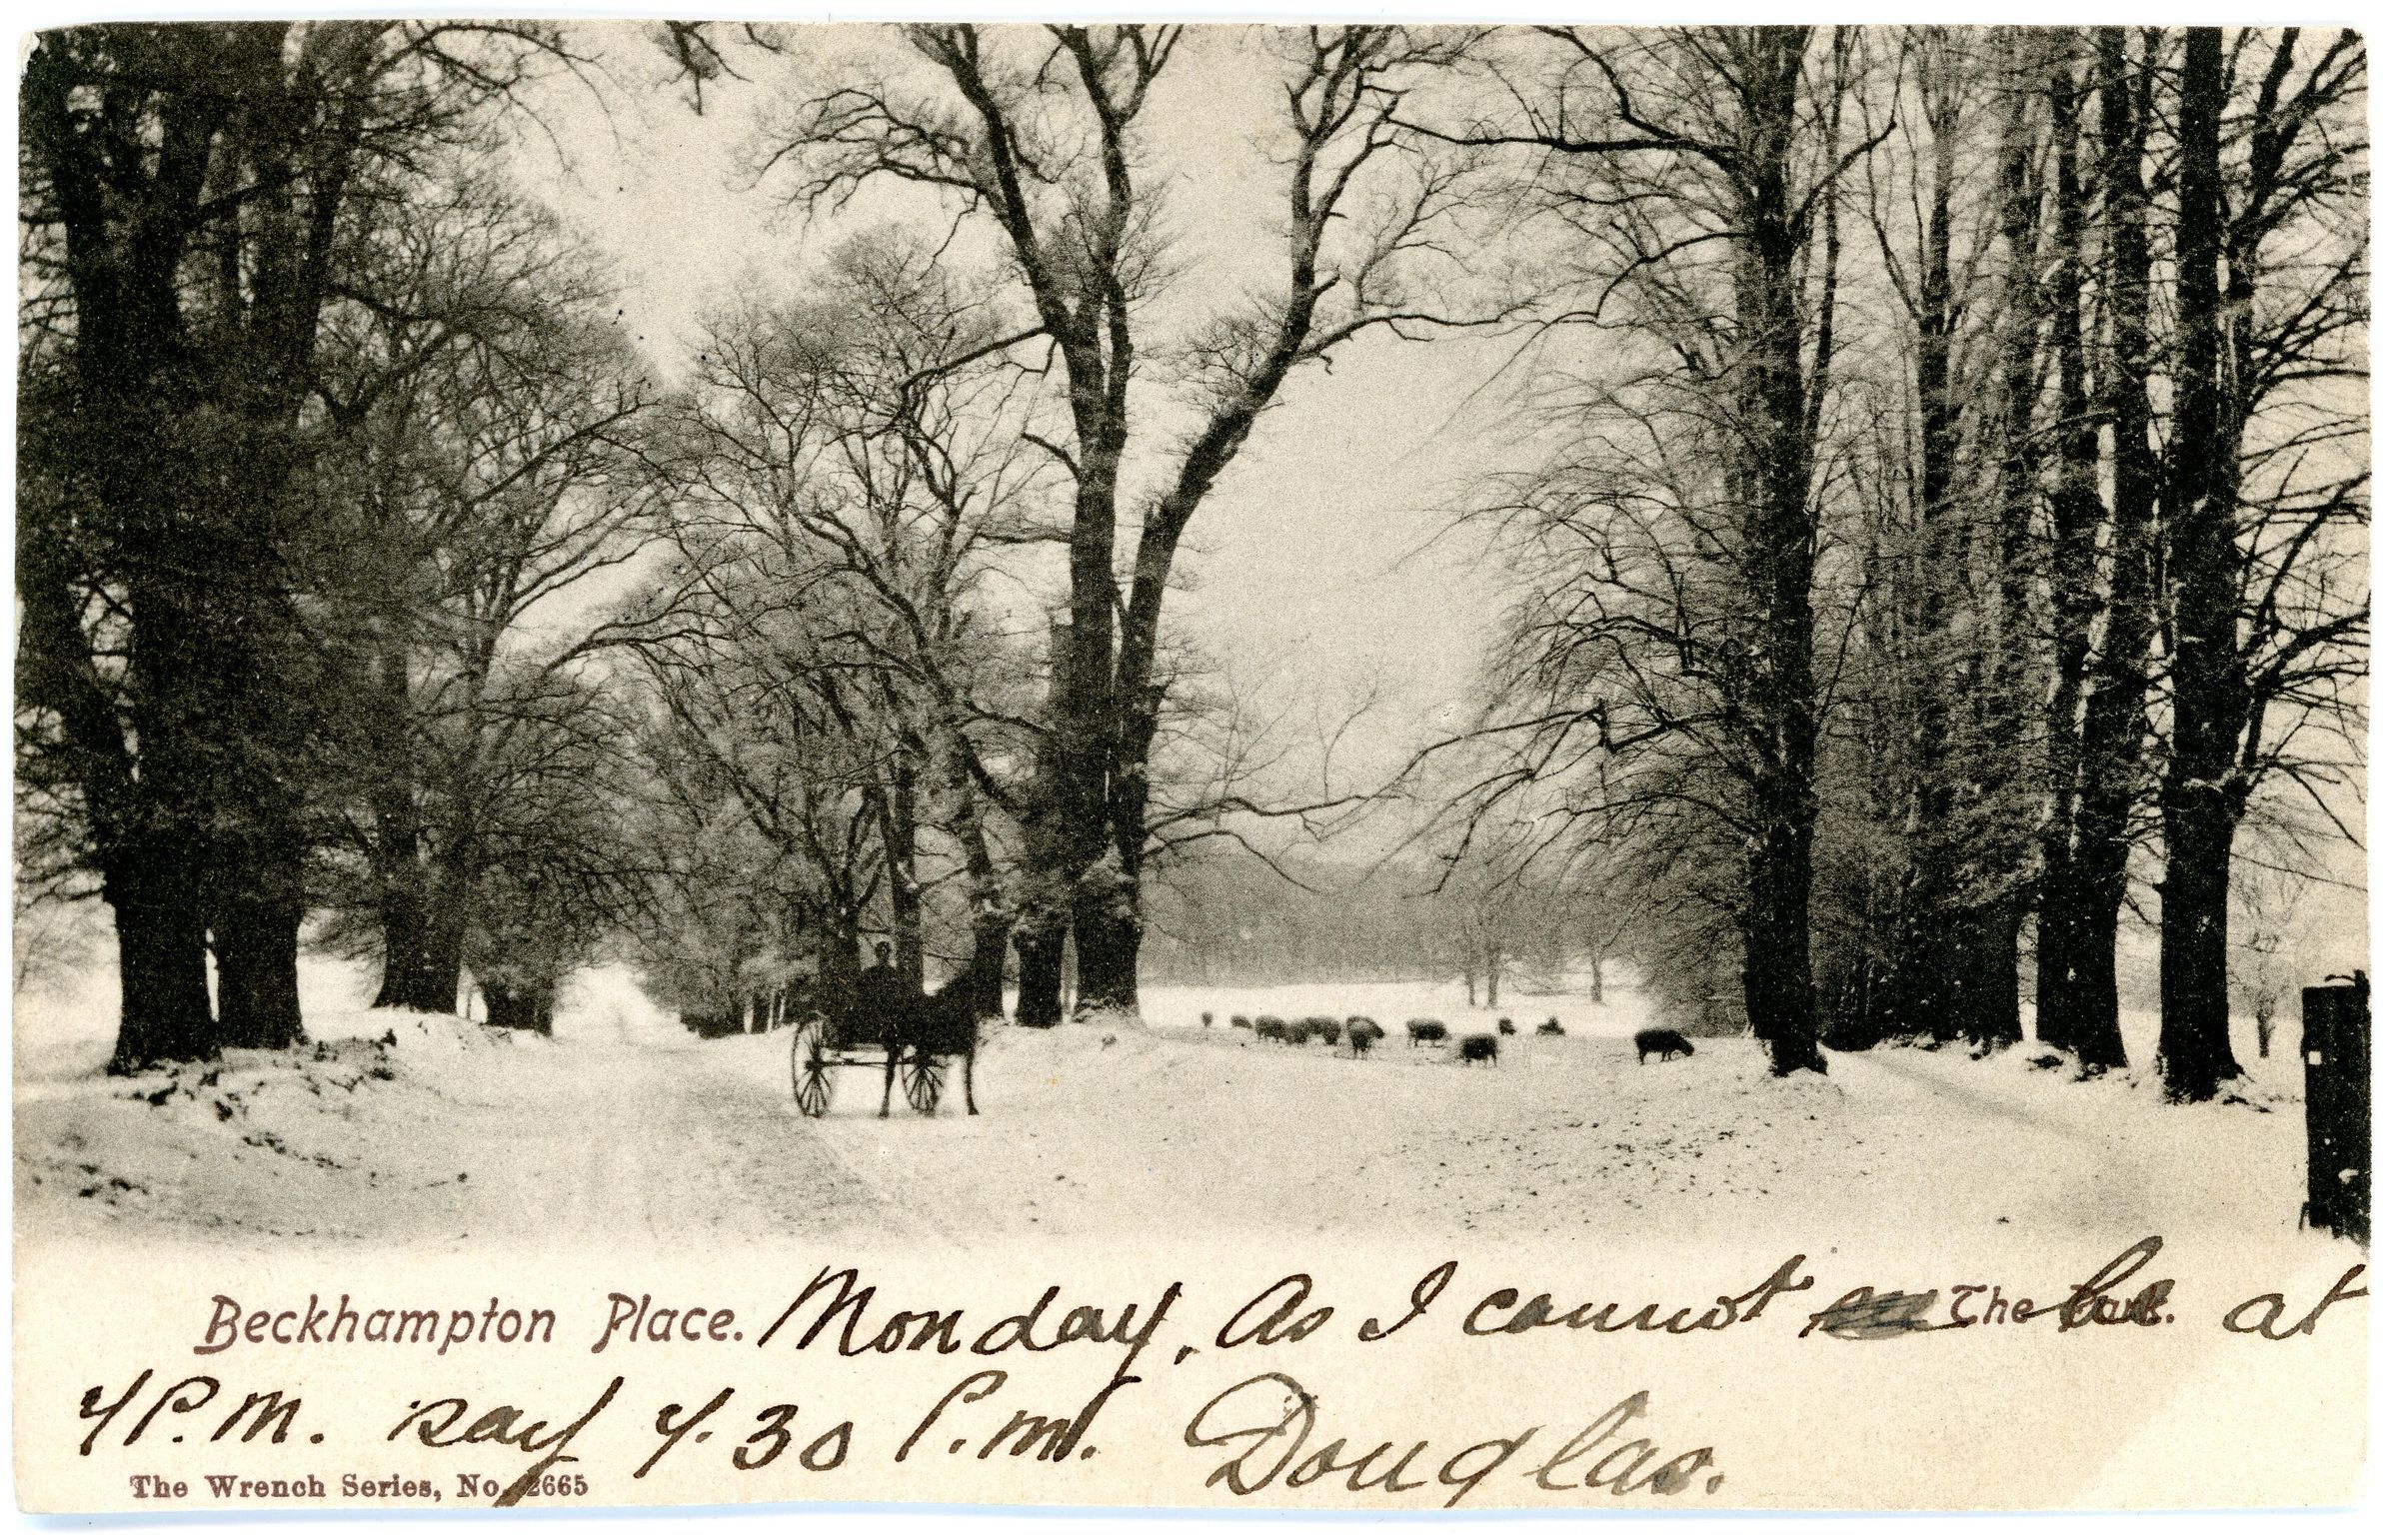 Beckhampton Place. The
Monday. As I cannot be at
4 P.M. say 4.30 P.M. Douglas.
The Wrench Series, No. 2665